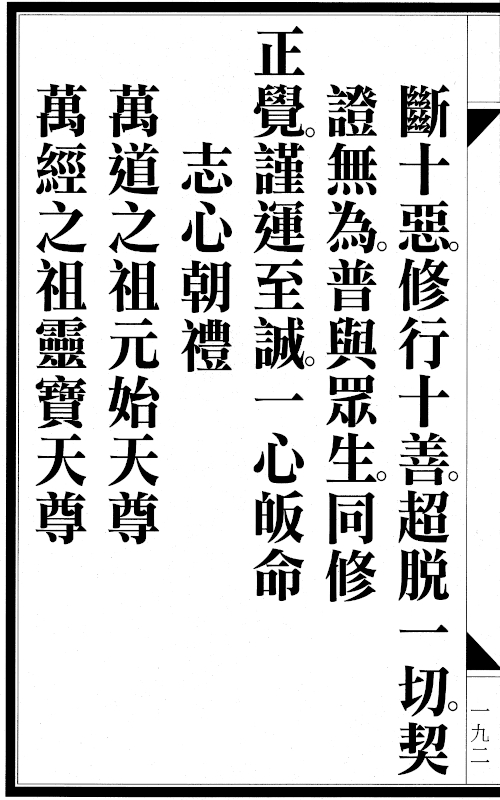 斷十惡。修行十善。超脱一切。契
證無為。普與眾生。同修
正覺。謹運至誠。一心皈命
志心朝禮
萬道之祖元始天尊
萬經之祖靈寶天尊
一九二